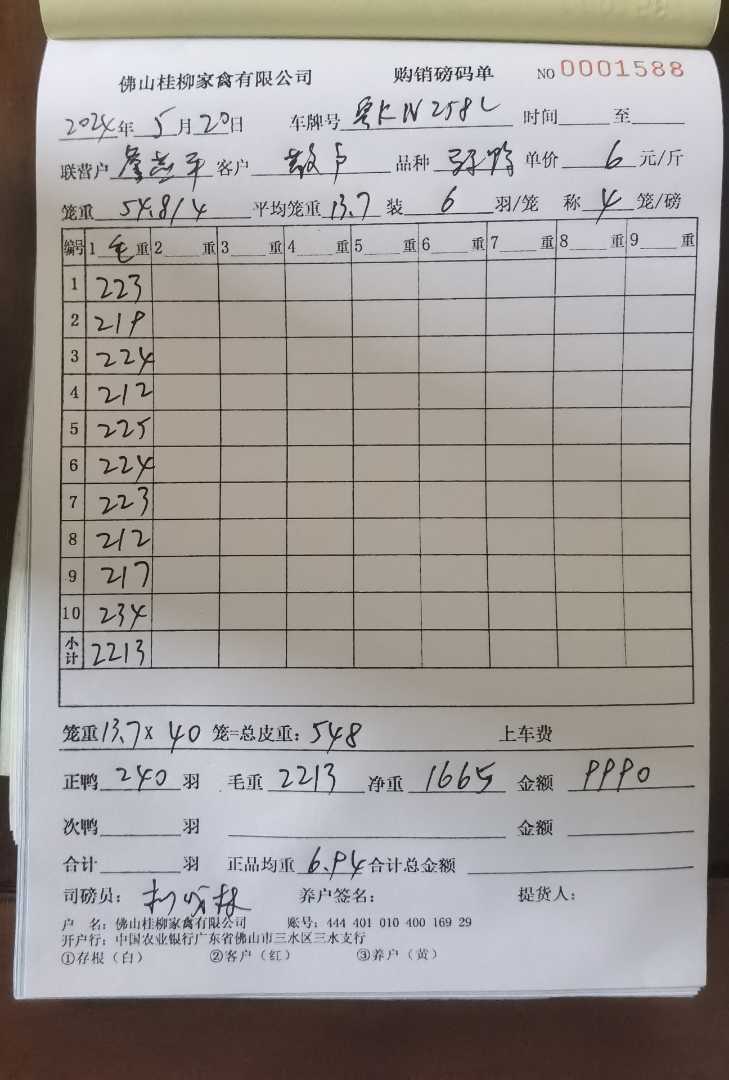 佛山桂柳家禽有限公司 购销磅码单 NO 0001588
2024年 5月20日 车牌号 粤KN258L 时间 至
联营户 客户 散户 品种 单价 6 元/斤
笼重 54.8/4 平均笼重 13.7 装 6 羽/笼 称 4 笼/磅
编号 1 毛重 2 重 3 重 4 重 5 重 6 重 7 重 8 重 9 重
1 223
2 219
3 224
4 212
5 225
6 224
7 223
8 212
9 217
10 234
小计 2213
笼重13.7× 40 笼=总皮重：548 上车费
正鸭 240 羽 毛重 2213 净重 1665 金额 9990
次鸭 羽 金额
合计 羽 正品均重 6.94 合计总金额
司磅员： 养户签名： 提货人：
户 名：佛山桂柳家禽有限公司 账号：444 401 010 400 169 29
开户行：中国农业银行广东省佛山市三水区三水支行
①存根（白） ②客户（红） ③养户（黄）